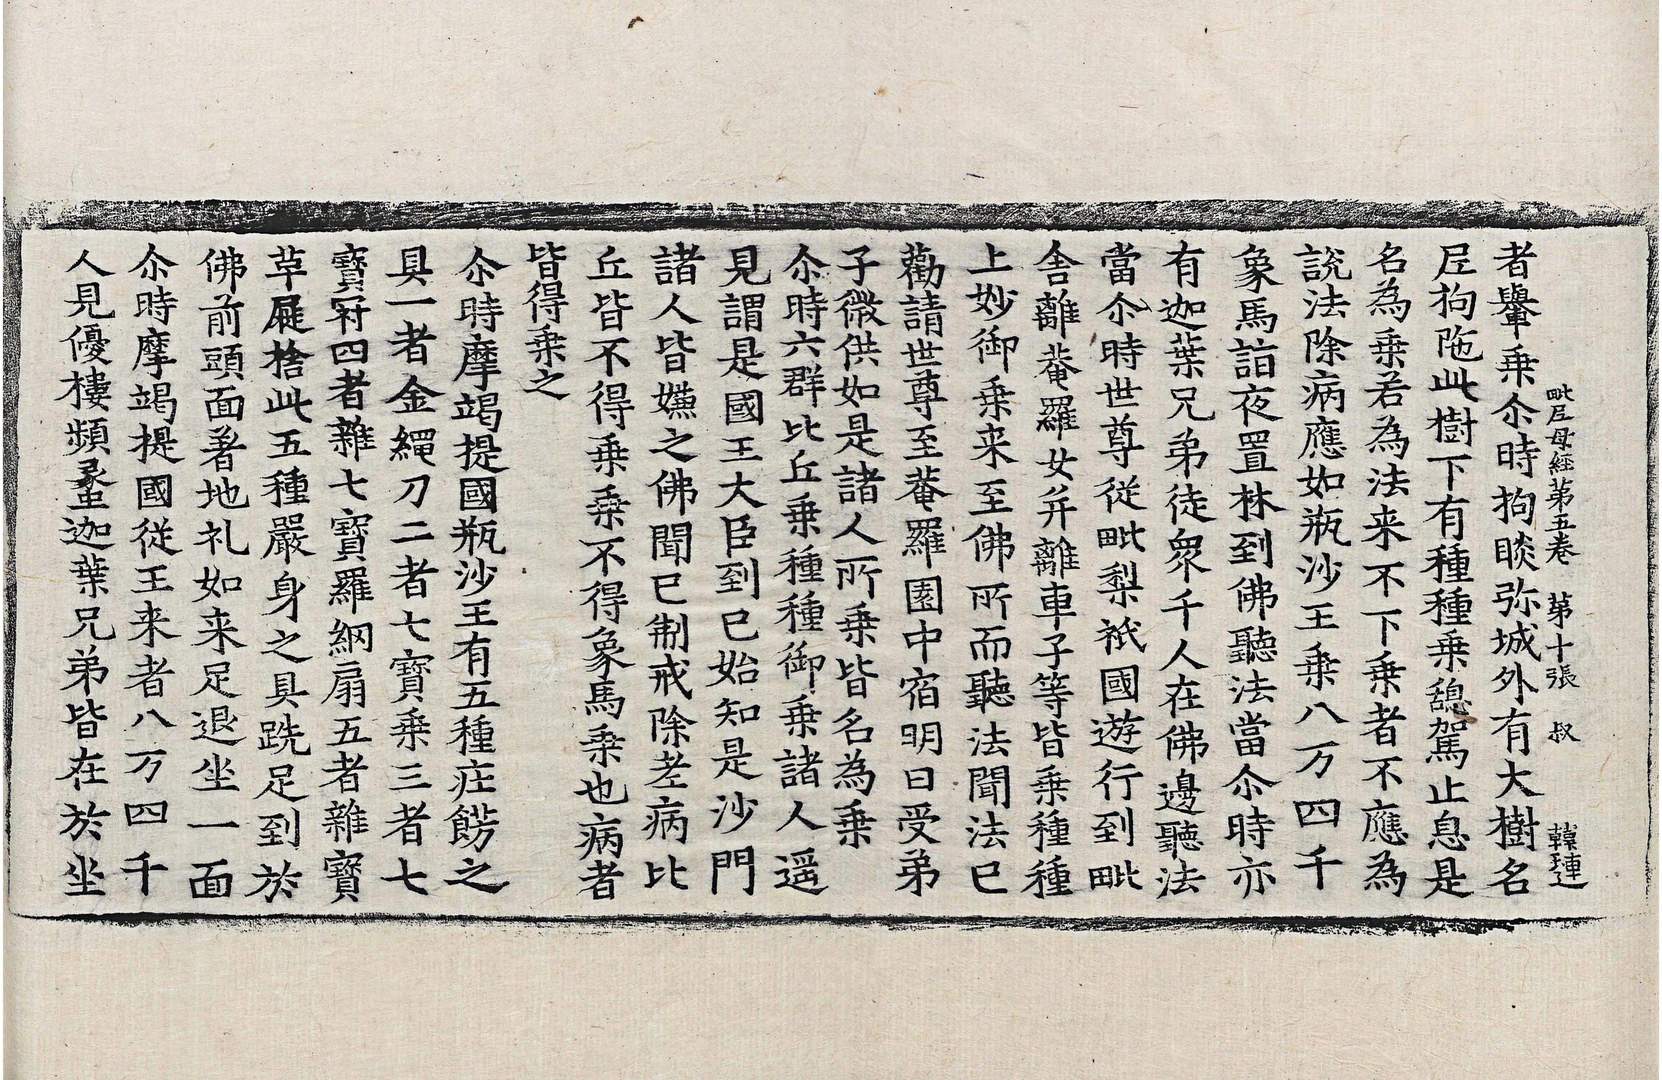 毗尼母經第五卷　第十張　叔　韓璉
者轝乗尒時拘睒弥城外有大樹名
尼拘陁此樹下有種種乗憩駕止息是
名為乗若為法来不下乗者不應為
說法除病應如瓶沙王乗八万四千
象馬詣夜置林到佛聽法當尒時亦
有迦葉兄弟徒衆千人在佛邊聽法
當尒時世尊従毗梨祇國遊行到毗
舍離菴羅女并離車子等皆乗種種
上妙御乗来至佛所而聽法聞法已
勸請世尊至菴羅園中宿明日受弟
子微供如是諸人所乗皆名為乗
尒時六群比丘乗種種御乗諸人遥
見謂是國王大臣到已始知是沙門
諸人皆嫌之佛聞已制戒除老病比
丘皆不得乗乗不得象馬乗也病者
皆得乗之
尒時摩竭提國瓶沙王有五種庄餝之
具一者金縄刀二者七寶乗三者七
寶冠四者雜七寶羅網扇五者雜寶
草屣捨此五種嚴身之具跣足到於
佛前頭面著地礼如来足退坐一面
尒時摩竭提國従王来者八万四千
人見優樓頻蠡迦葉兄弟皆在於坐